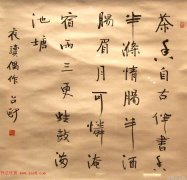 茶香自古伴書香
半滌情腸半酒
腸眉月可憐淹
宿雨三更蛙鼓滿
池塘
夜讀偶作